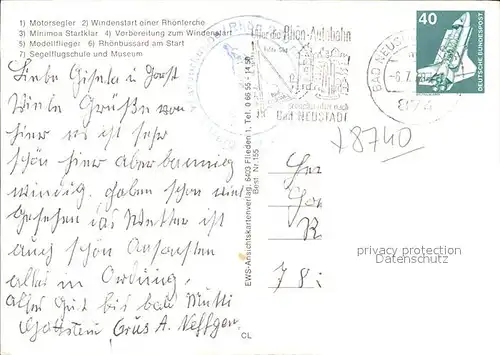 1) Motorsegler 2) Windenstart einer Rhönlerche
3) Minimoa Startklar 4) Vorbereitung zum Windenstart
5) Modellflieger 6) Rhönbussard am Start
7) Segelflugschule und Museum
Liebe Gisela u Horst
Viele Grüße von
hier es ist sehr
schön hier aber
windig. haben schon viel
gesehen das Wetter ist
auch schön Ansonsten
alles in Ordnung,
Alles Gut bis bald Mutti
Gottstein, Grüs A. Neffgen
EWS-Ansichtskartenverlag, 6403 Flieden 1, Tel. 0 66 55 - 14 56
Best. Nr. 155
CL
über die Rhön-Autobahn
BAD NEUSTADT
BAD NEUSTADT
-6.7.
874
40
DEUTSCHE BUNDESPOST
8740
R
78
privacy protection
Datenschutz